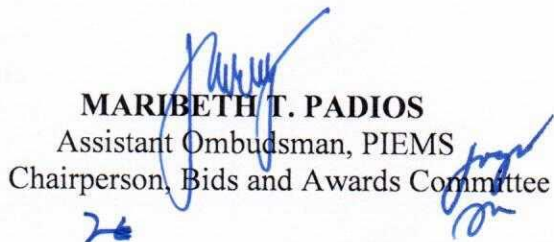 MARIBETH T. PADIOS
Assistant Ombudsman, PIEMS
Chairperson, Bids and Awards Committee